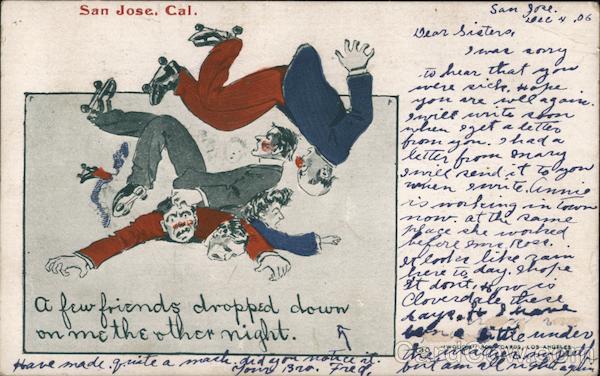 San Jose, Cal.
San Jose.
Dec 4, 06
Dear Sister,
I was sorry
to hear that you
were sick. Hope
you are well again.
I will write soon
when I get a letter
from you. I had a
letter from Mary
I will send it to you
when I write. Annie
is working in town
now. at the same
place she worked
before Mrs. Rose.
It looks like rain
here to day. I hope
it dont. How is
Cloverdale these
days. I have
been a little under
the
but am all right again
A few friends dropped down
on me the other night.
Have made quite a mark. did you notice it
Your Bro. Fred.